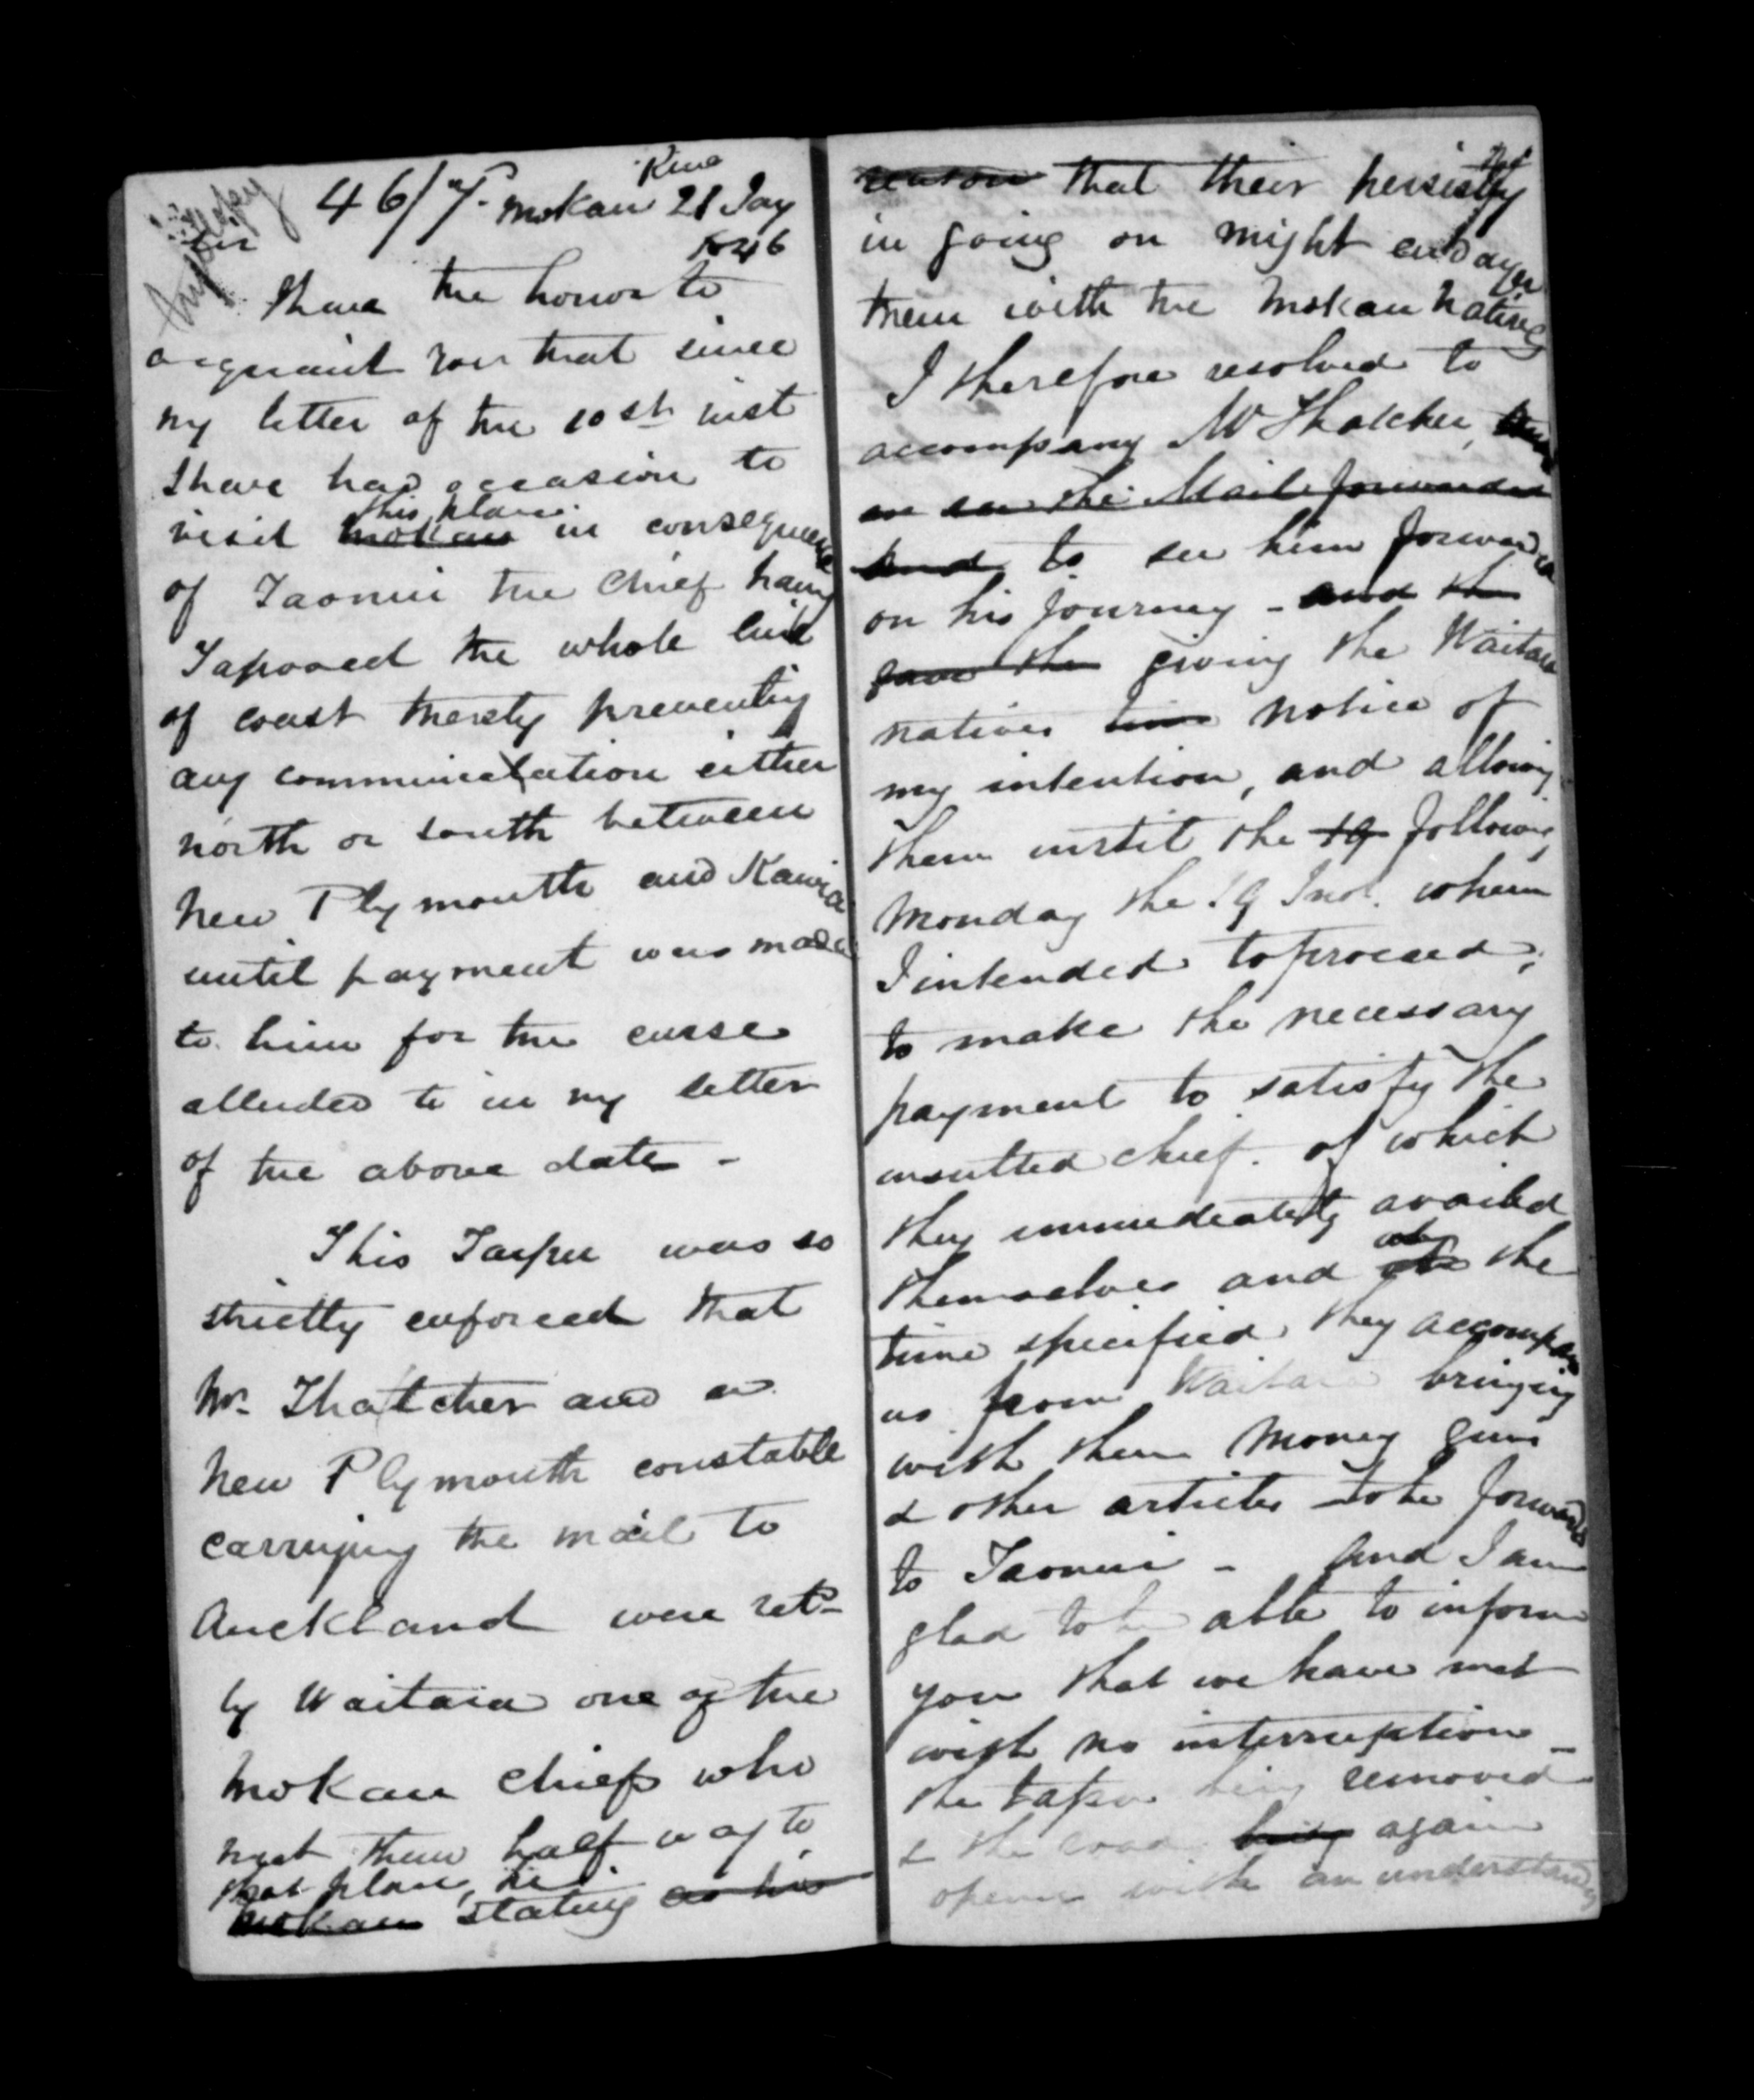 46/7. Mokau 21 Jay
1846
Sir
I have the honor to
acquaint you that since
my letter of the 10st inst
I have had occasion to
this place
visit Mokau in consequence
of Taonui the Chief havg
Tapooed the whole line
of coast thereby preventing
any communication either
north or south between
New Plymouth and Kawia
until payment was made
to him for the curse
alluded to in my letter
of the above date -
This Tarpu was so
strictly enforced that
Mr. Thatcher and a
New Plymouth constable
carrying the mail to
Auckland were retd
by Waitara one of the
Mokau chiefs who
met them half way to
that place, he
Mokau stating as his
reason that their persistg
in going on might endanger
them with the Mokau natives
I therefore resolved to
accompany Mr Thatcher,
the Mail forwarded
and to see him forwarded
on his journey - and th
gave the giving the Waitara
natives time notice of
my intention, and allowing
them until the 19 following
Monday the 19 Inst. when
I intended to proceed,
to make the necessary
payment to satisfy the
insulted chief. of which
they immediately availed
themselves and at the
time specified they accompad
us from Waitara bringing
with them money guns
& other articles to be forwarded
to Taonui - And I am
glad to be able to inform
you that we have met
with no interruption -
the tapu being removed
& the road being again
opened with an understanding